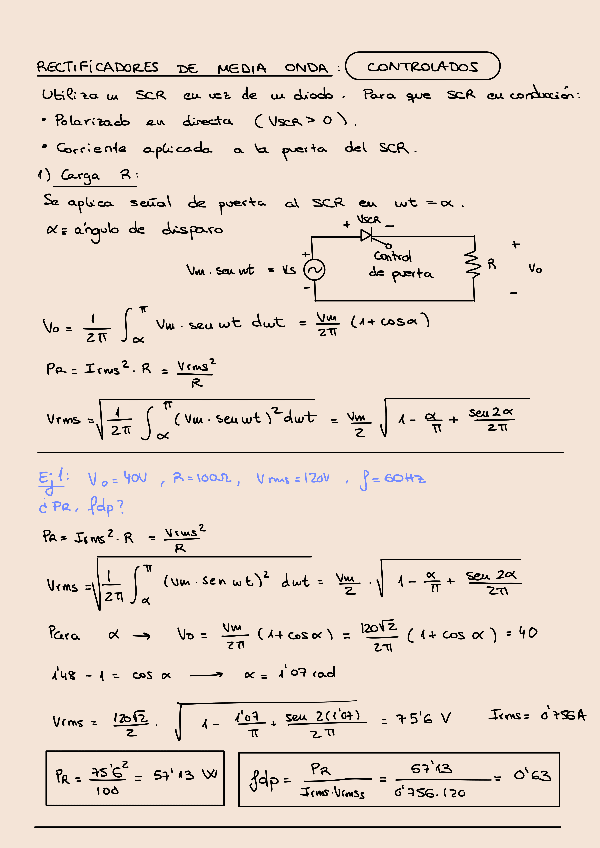 RECTIFICADORES DE MEDIA ONDA: CONTROLADOS
Utiliza un SCR en vez de un diodo. Para que SCR en conducción:
• Polarizado en directa (VSCR > 0).
• Corriente aplicada a la puerta del SCR.
1) Carga R:
Se aplica señal de puerta al SCR en wt = α.
α ≡ ángulo de disparo
+ VSCR −
Control de puerta
Vm · sen wt = Vs
+
−
R
+
Vo
−
Vo = 1/2π ∫_α^π Vm · sen wt dwt = Vm/2π (1 + cos α)
PR = Irms² · R = Vrms²/R
Vrms = √(1/2π ∫_α^π (Vm · sen wt)² dwt) = Vm/2 √(1 − α/π + sen 2α/2π)
Ej 1: Vo = 40V, R = 100Ω, Vrms = 120V, f = 60Hz
¿PR, fdp?
PR = Irms² · R = Vrms²/R
Vrms = √(1/2π ∫_α^π (Vm · sen wt)² dwt) = Vm/2 · √(1 − α/π + sen 2α/2π)
Para α → Vo = Vm/2π (1 + cos α) = 120√2/2π (1 + cos α) = 40
1'48 − 1 = cos α → α = 1'07 rad
Vrms = 120√2/2 · √(1 − 1'07/π + sen 2(1'07)/2π) = 75'6 V Irms = 0'756A
PR = 75'6²/100 = 57'13 W
fdp = PR/(Irms·Vrmss) = 57'13/(0'756·120) = 0'63